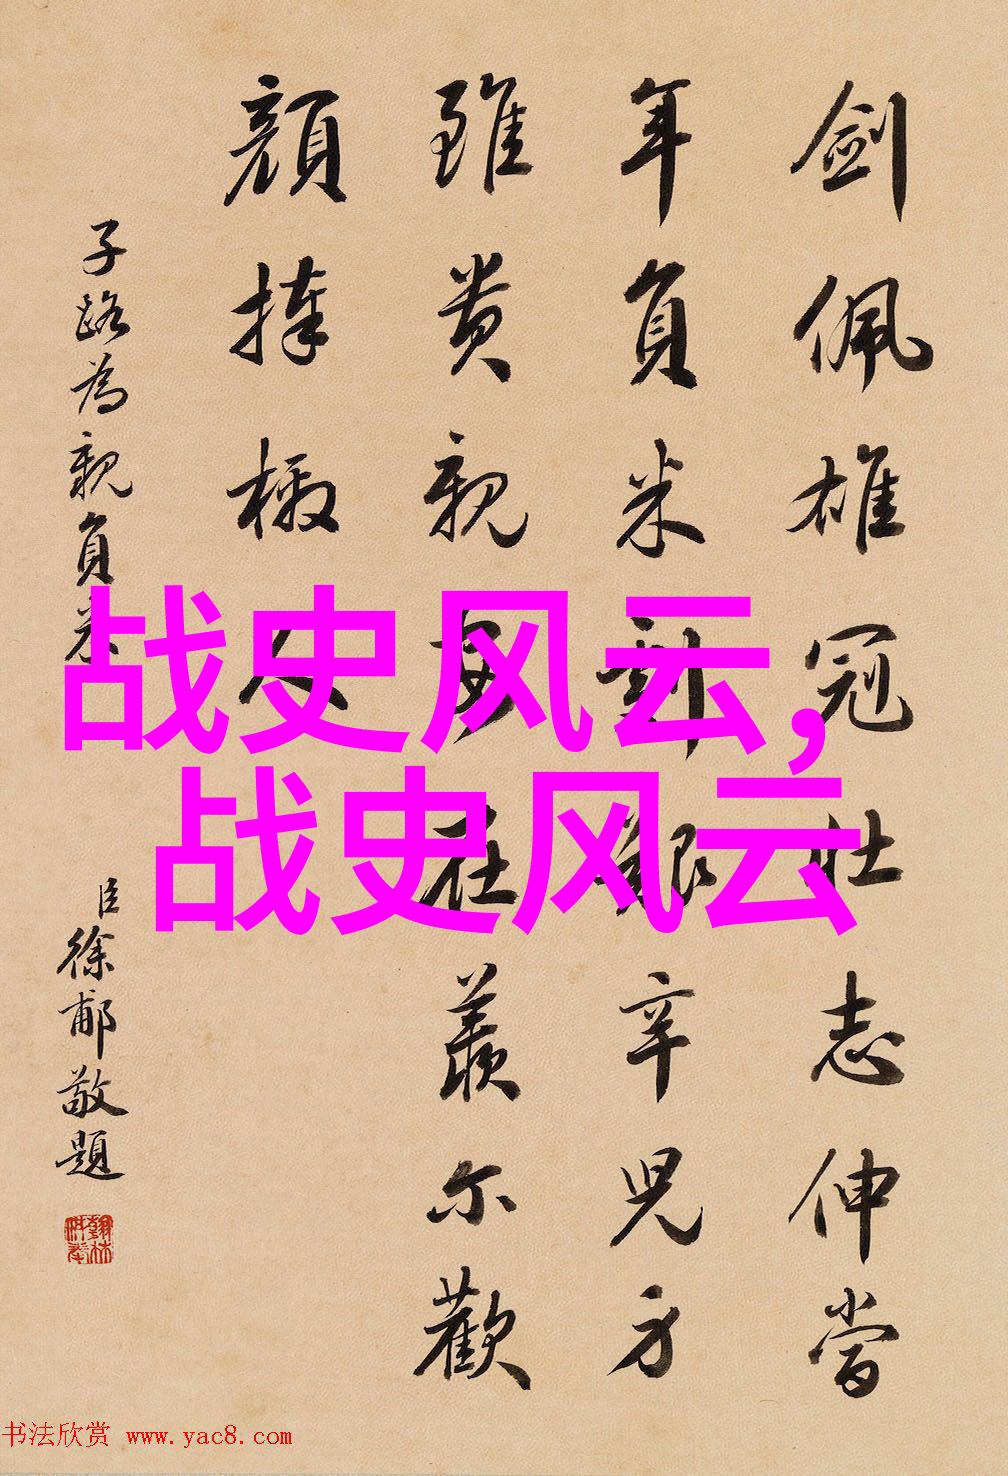 剑佩雄冠壮志伸當
年負米艱辛兒方
雖贵親在羨尔歡
顔捧檄人
子路為親負米
臣徐郙敬題
战史风云,
战史风云
书法欣赏 www.yac8.com